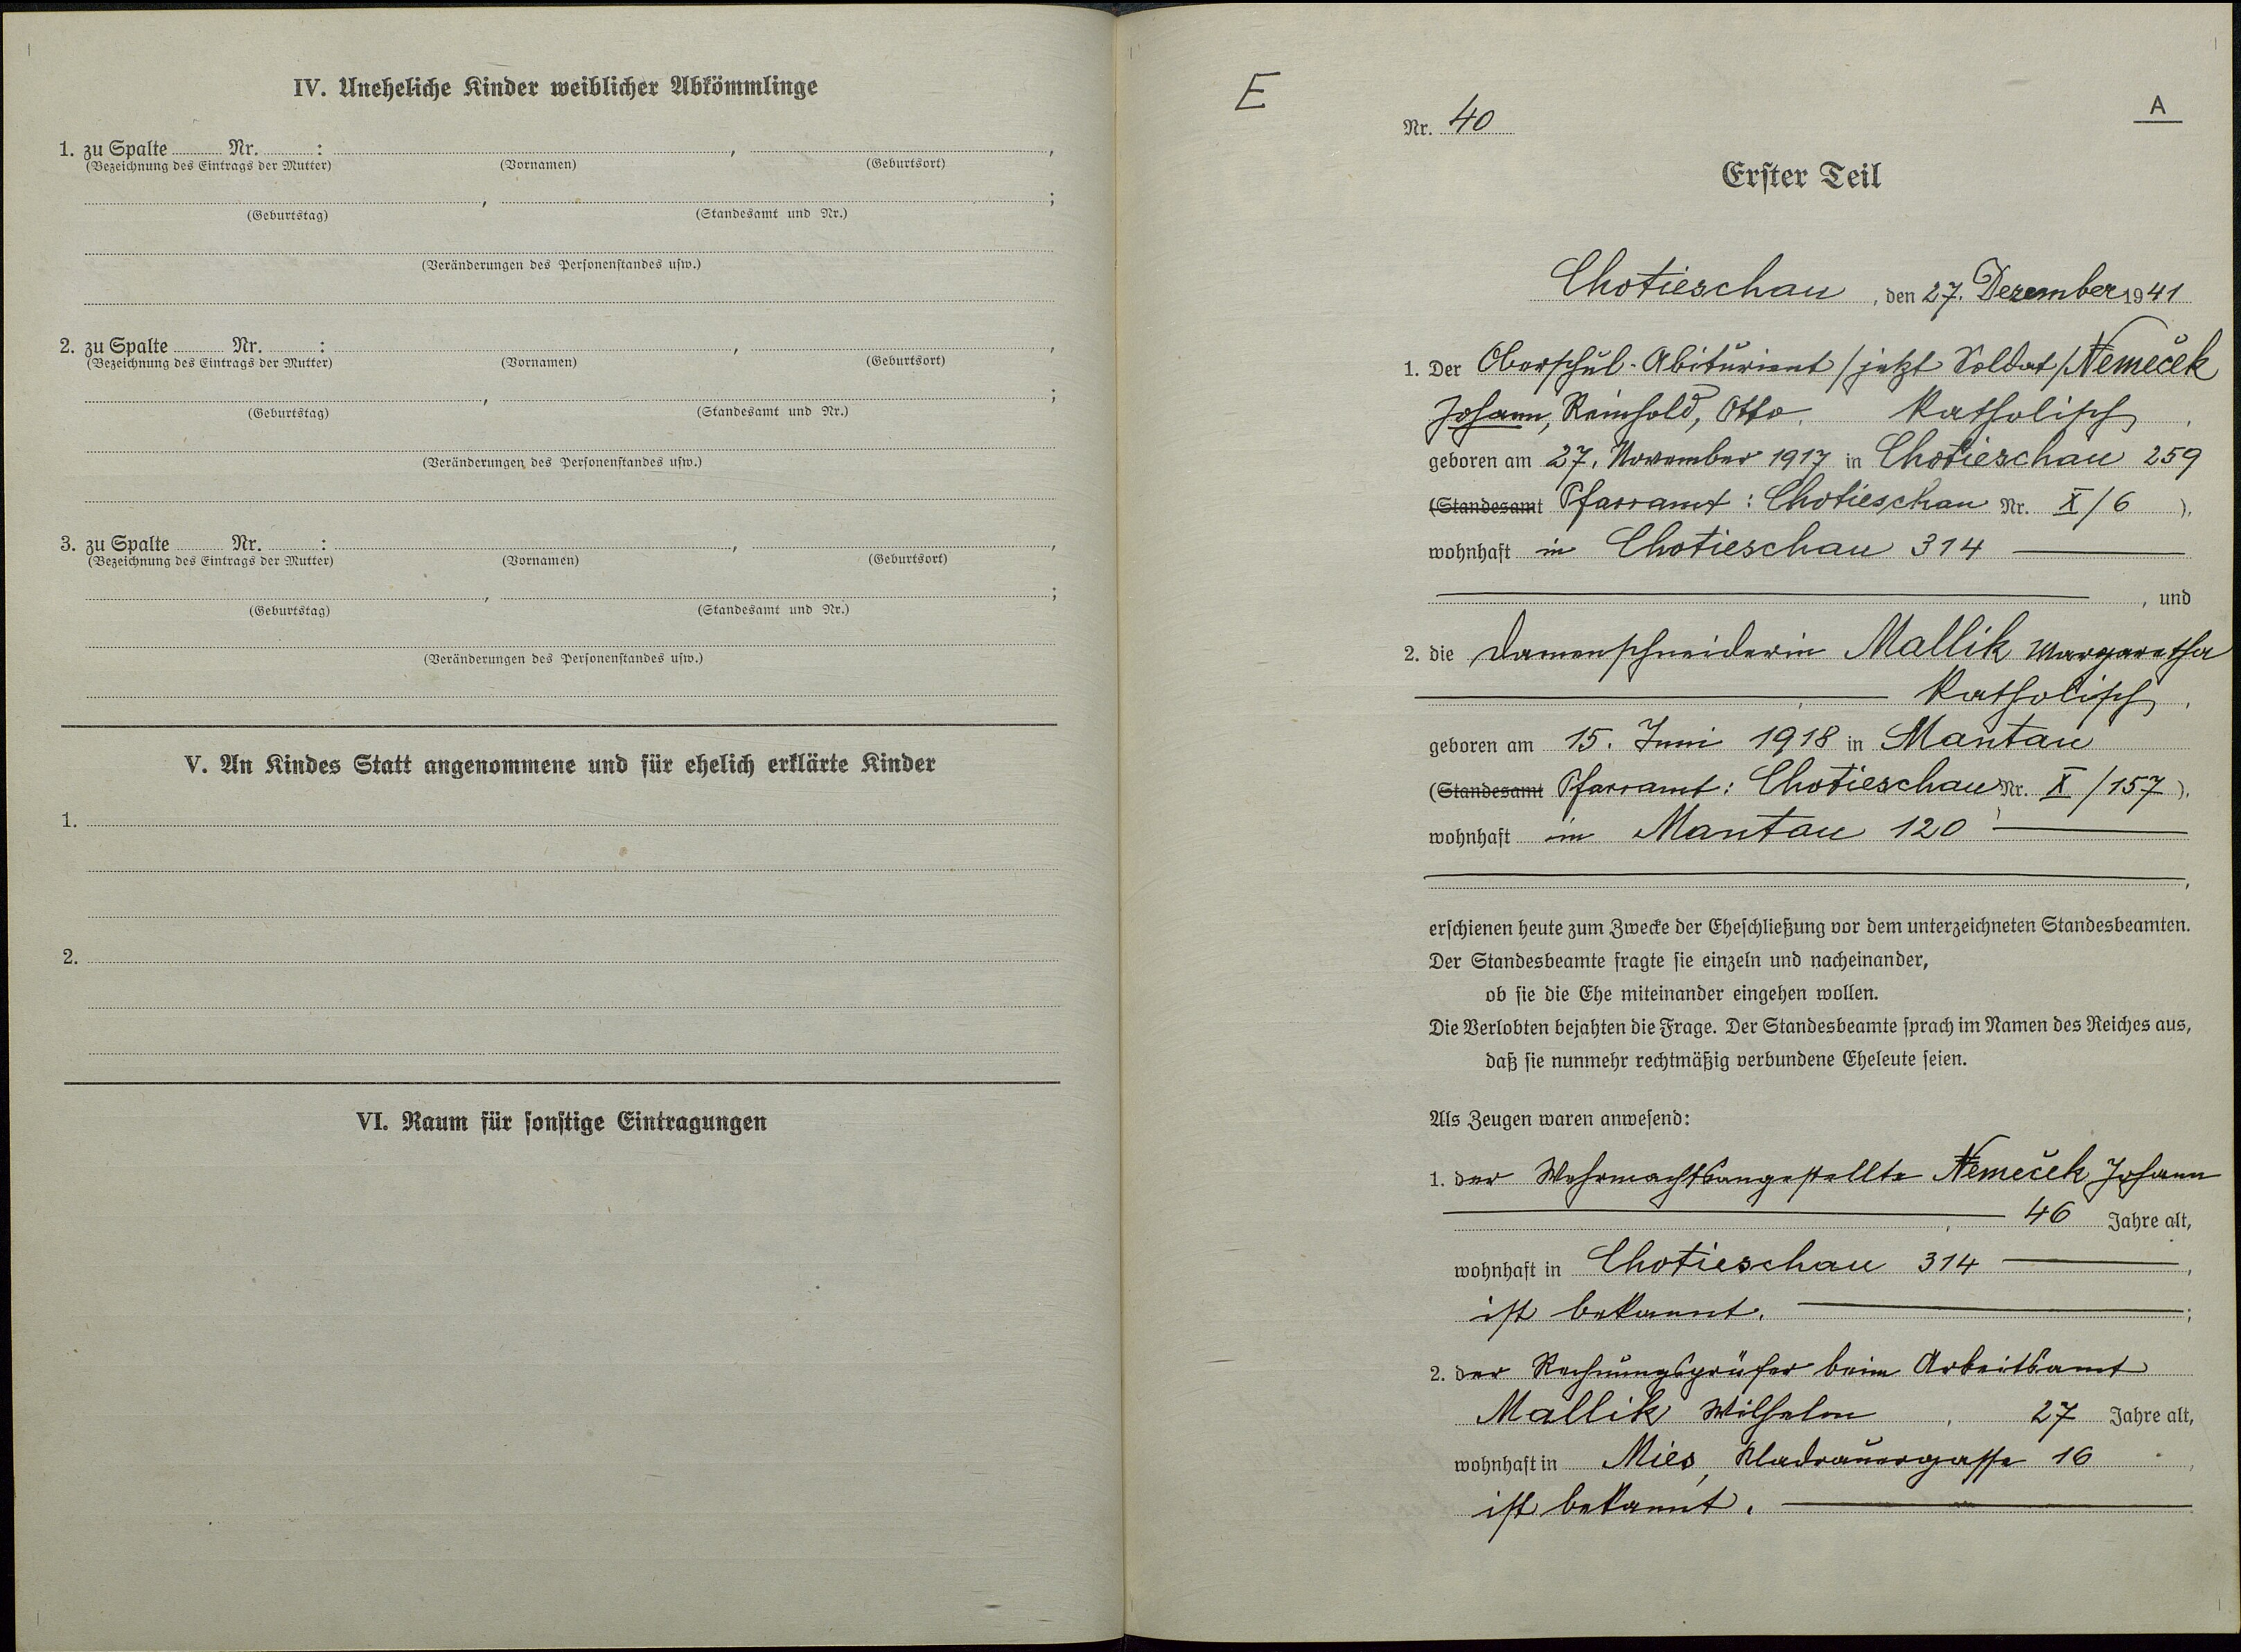 IV. Uneheliche Kinder weiblicher Abkömmlinge
1. zu Spalte Nr. : , ,
(Bezeichnung des Eintrags der Mutter) (Vornamen) (Geburtsort)
, ;
(Geburtstag) (Standesamt und Nr.)
(Veränderungen des Personenstandes usw.)
2. zu Spalte Nr. : , ,
(Bezeichnung des Eintrags der Mutter) (Vornamen) (Geburtsort)
, ;
(Geburtstag) (Standesamt und Nr.)
(Veränderungen des Personenstandes usw.)
3. zu Spalte Nr. : , ,
(Bezeichnung des Eintrags der Mutter) (Vornamen) (Geburtsort)
, ;
(Geburtstag) (Standesamt und Nr.)
(Veränderungen des Personenstandes usw.)
V. An Kindes Statt angenommene und für ehelich erklärte Kinder
1.
2.
VI. Raum für sonstige Eintragungen
E
A
Nr. 40
Erster Teil
Chotieschau, den 27. Dezember 1941
1. Der Oberschul-Abiturient / jetzt Soldat / Nemeček
Johann, Reinhold, Otto, katholisch,
geboren am 27. November 1917 in Chotieschau 259
(Standesamt Pfarramt: Chotieschau Nr. X/6),
wohnhaft in Chotieschau 314
, und
2. die Damenschneiderin Mallik Margaretha
, katholisch,
geboren am 15. Juni 1918 in Mantau
(Standesamt Pfarramt: Chotieschau Nr. X/157),
wohnhaft in Mantau 120
,
erschienen heute zum Zwecke der Eheschließung vor dem unterzeichneten Standesbeamten.
Der Standesbeamte fragte sie einzeln und nacheinander,
ob sie die Ehe miteinander eingehen wollen.
Die Verlobten bejahten die Frage. Der Standesbeamte sprach im Namen des Reiches aus,
daß sie nunmehr rechtmäßig verbundene Eheleute seien.
Als Zeugen waren anwesend:
1. der Wehrmachtsangestellte Nemeček Johann
, 46 Jahre alt,
wohnhaft in Chotieschau 314,
ist bekannt. ;
2. der Rechnungsprüfer beim Arbeitsamt
Mallik Wilhelm, 27 Jahre alt,
wohnhaft in Mies, Kladrauergasse 16,
ist bekannt.